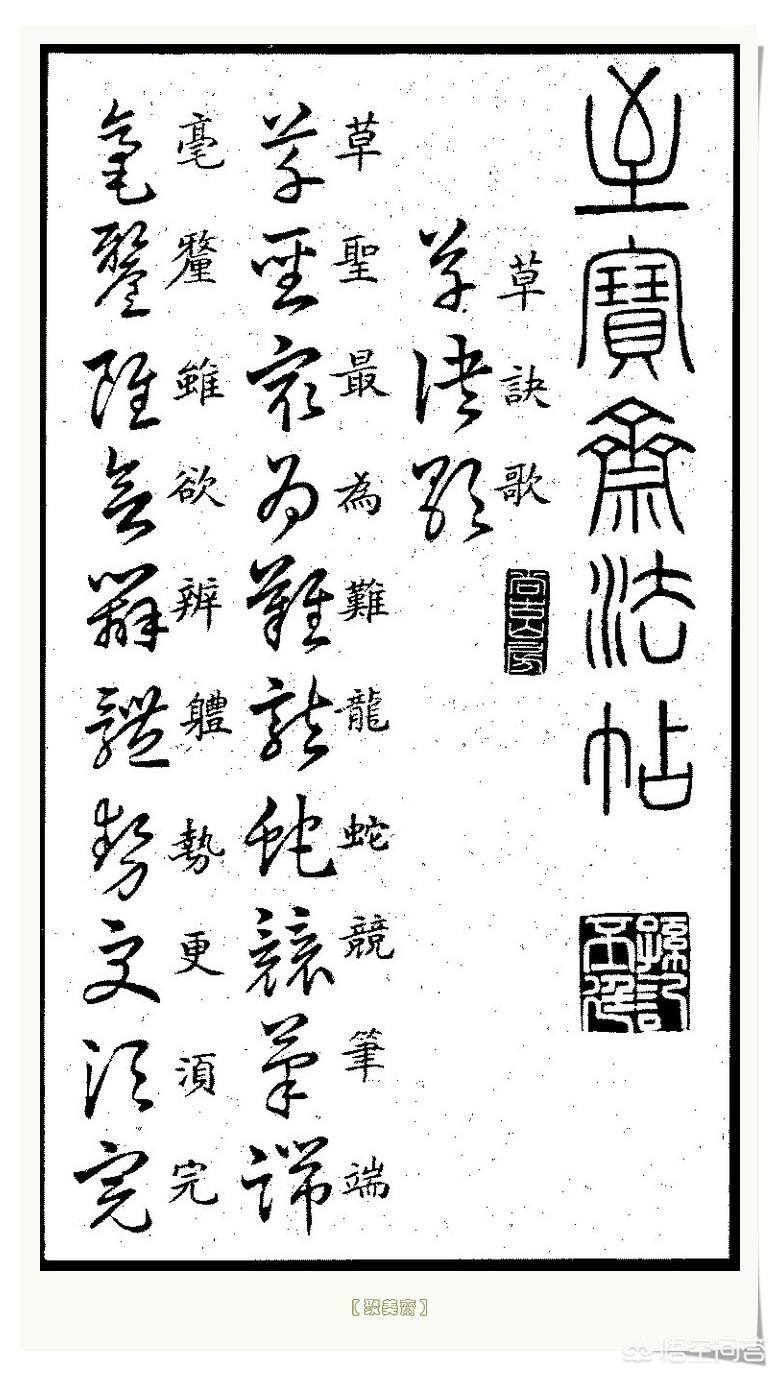 至寶齋法帖
草訣歌
草訣歌
草聖最為難龍蛇競筆端
草聖最為難龍蛇競筆端
毫釐雖欲辨軆勢更湏完
毫釐雖欲辨體勢更須完
〖聚美齋〗
悟空问答